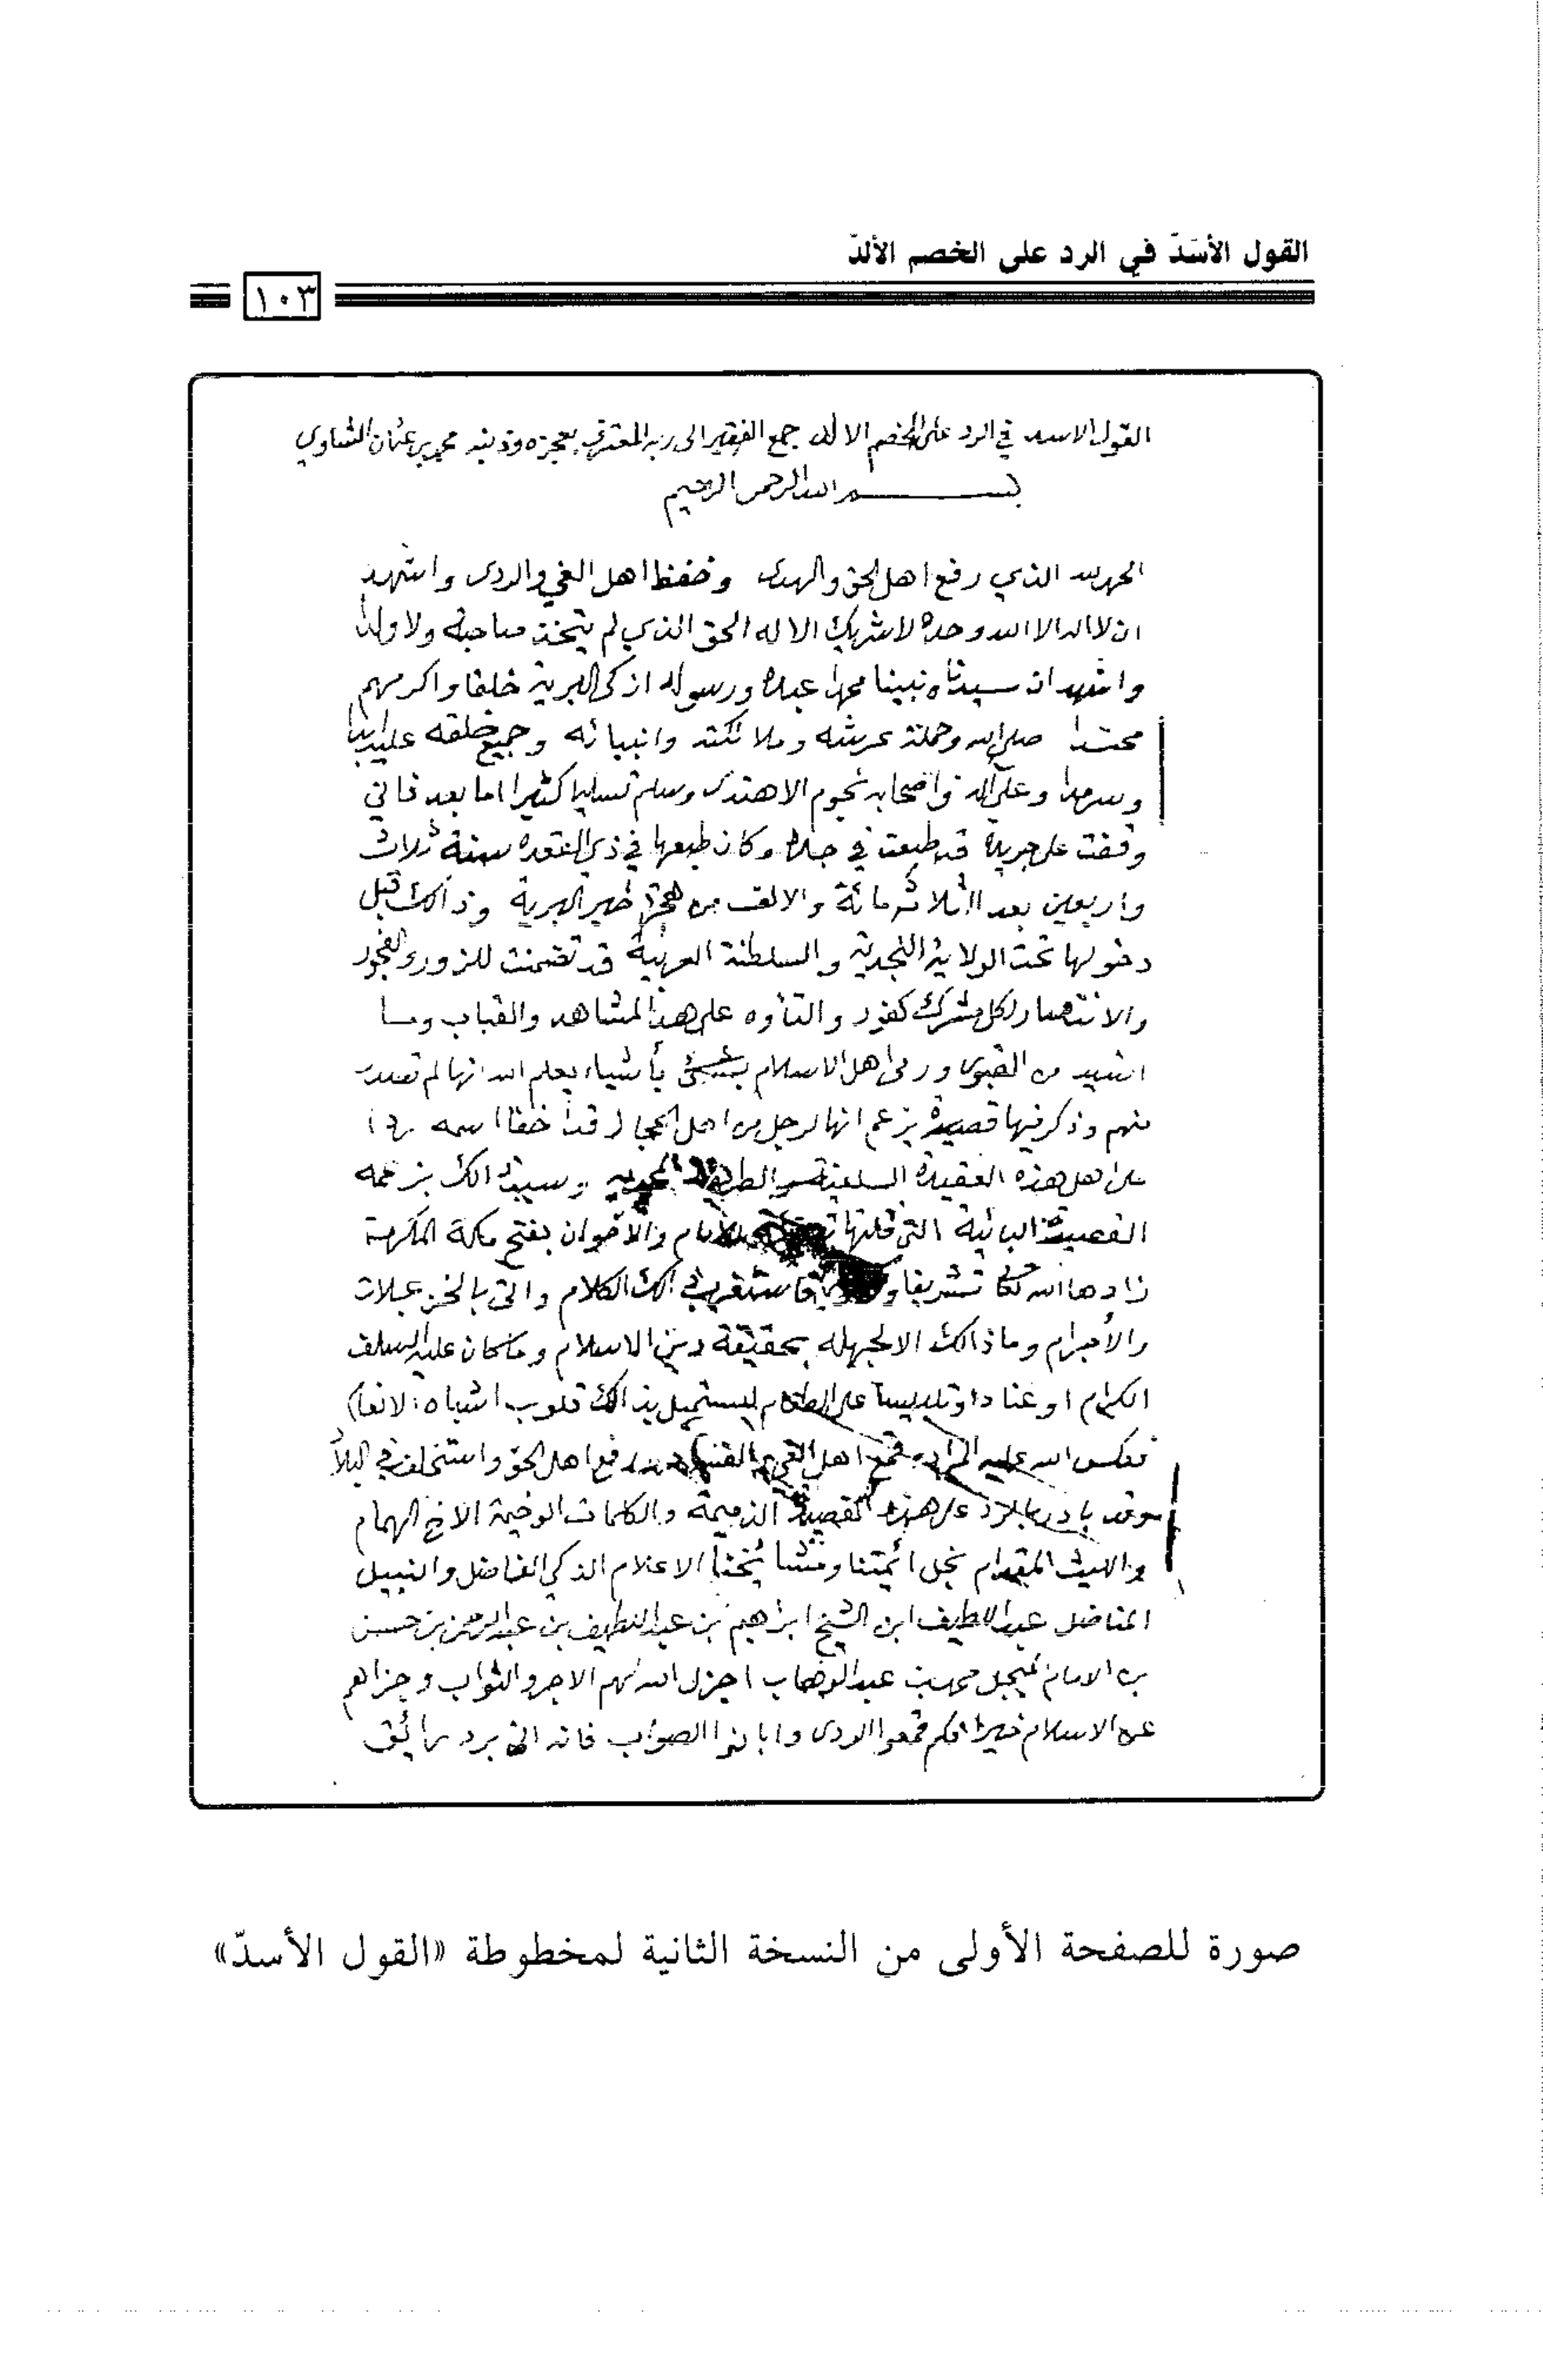 القول الأسَدّ في الرد على الخصم الألدّ
١٠٣
القول الاسد في الرد على الخصم الالد جمع الفقير الى ربه المعترف بعجزه وذنبه محمد بن عثمان الشاوي
بسم الله الرحمن الرحيم
الحمد لله الذي رفع اهل الحق والهدى وخفظ اهل الغي والردى واشهد
ان لا اله الا الله وحده لا شريك الاله الحق الذي لم يتخذ صاحبة ولا ولدا
واشهد ان سيدنا ونبينا محمدا عبده ورسوله ازكى البرية خلقا واكرمهم
محتدا صلى الله وحملة عرشه وملائكته وانبيائه وجميع خلقه عليه ابدا
وسرمدا وعلى آله واصحابه نجوم الاهتدى وسلم تسليما كثيرا اما بعد فاني
وقفت على جريدة قد طبعت في جده وكان طبعها في ذي القعده سنة ثلاث
واربعين بعد الثلاثمائة والالف من هجرة خير البرية وذالك قبل
دخولها تحت الولاية النجدية والسلطنة العربية قد تضمنت للزور والفجور
والانتصار لكل مشرك كفور والتأوه على هذا المشاهد والقباب وما
اشيد من القبور ورمى اهل الاسلام بأشياء يعلم الله انها لم تصدر
منهم وذكر فيها قصيدة يزعم انها لرجل من اهل الحجاز قد اخفا اسمه
على اهل هذه العقيدة السلفية والطريقة المحمدية وسبب ذالك بزعمه
القصيدة البائية التي قلتها للامام والاخوان بفتح مكة المكرمة
زادها الله تشريفا فاستغرب ذالك الكلام واتى بالخزعبلات
والأجرام وما ذالك الا لجهله بحقيقة دين الاسلام وما كان عليه السلف
الكرام او عنادا وتلبيسا على الطغام ليستميل بذالك قلوب اشباه الانعام
فعكس الله عليه المراد وقمع اهل الغي ورفع اهل الحق واستخلفهم في البلاد
وقد بادر بالرد على هذه القصيدة الذميمة والكلمات الوخيمة الاخ الهمام
والليث المقدام نجل ائمتنا ومشايخنا الاعلام الذكي الفاضل والنبيل
المناضل عبد اللطيف ابن الشيخ ابراهيم بن عبد اللطيف بن عبد الرحمن بن حسن
بن الامام المبجل محمد بن عبد الوهاب اجزل الله لهم الاجر والثواب وجزاهم
عن الاسلام خيرا فكم قمعوا الردى وابانوا الصواب فانه اتى برد رائق
صورة للصفحة الأولى من النسخة الثانية لمخطوطة «القول الأسدّ»